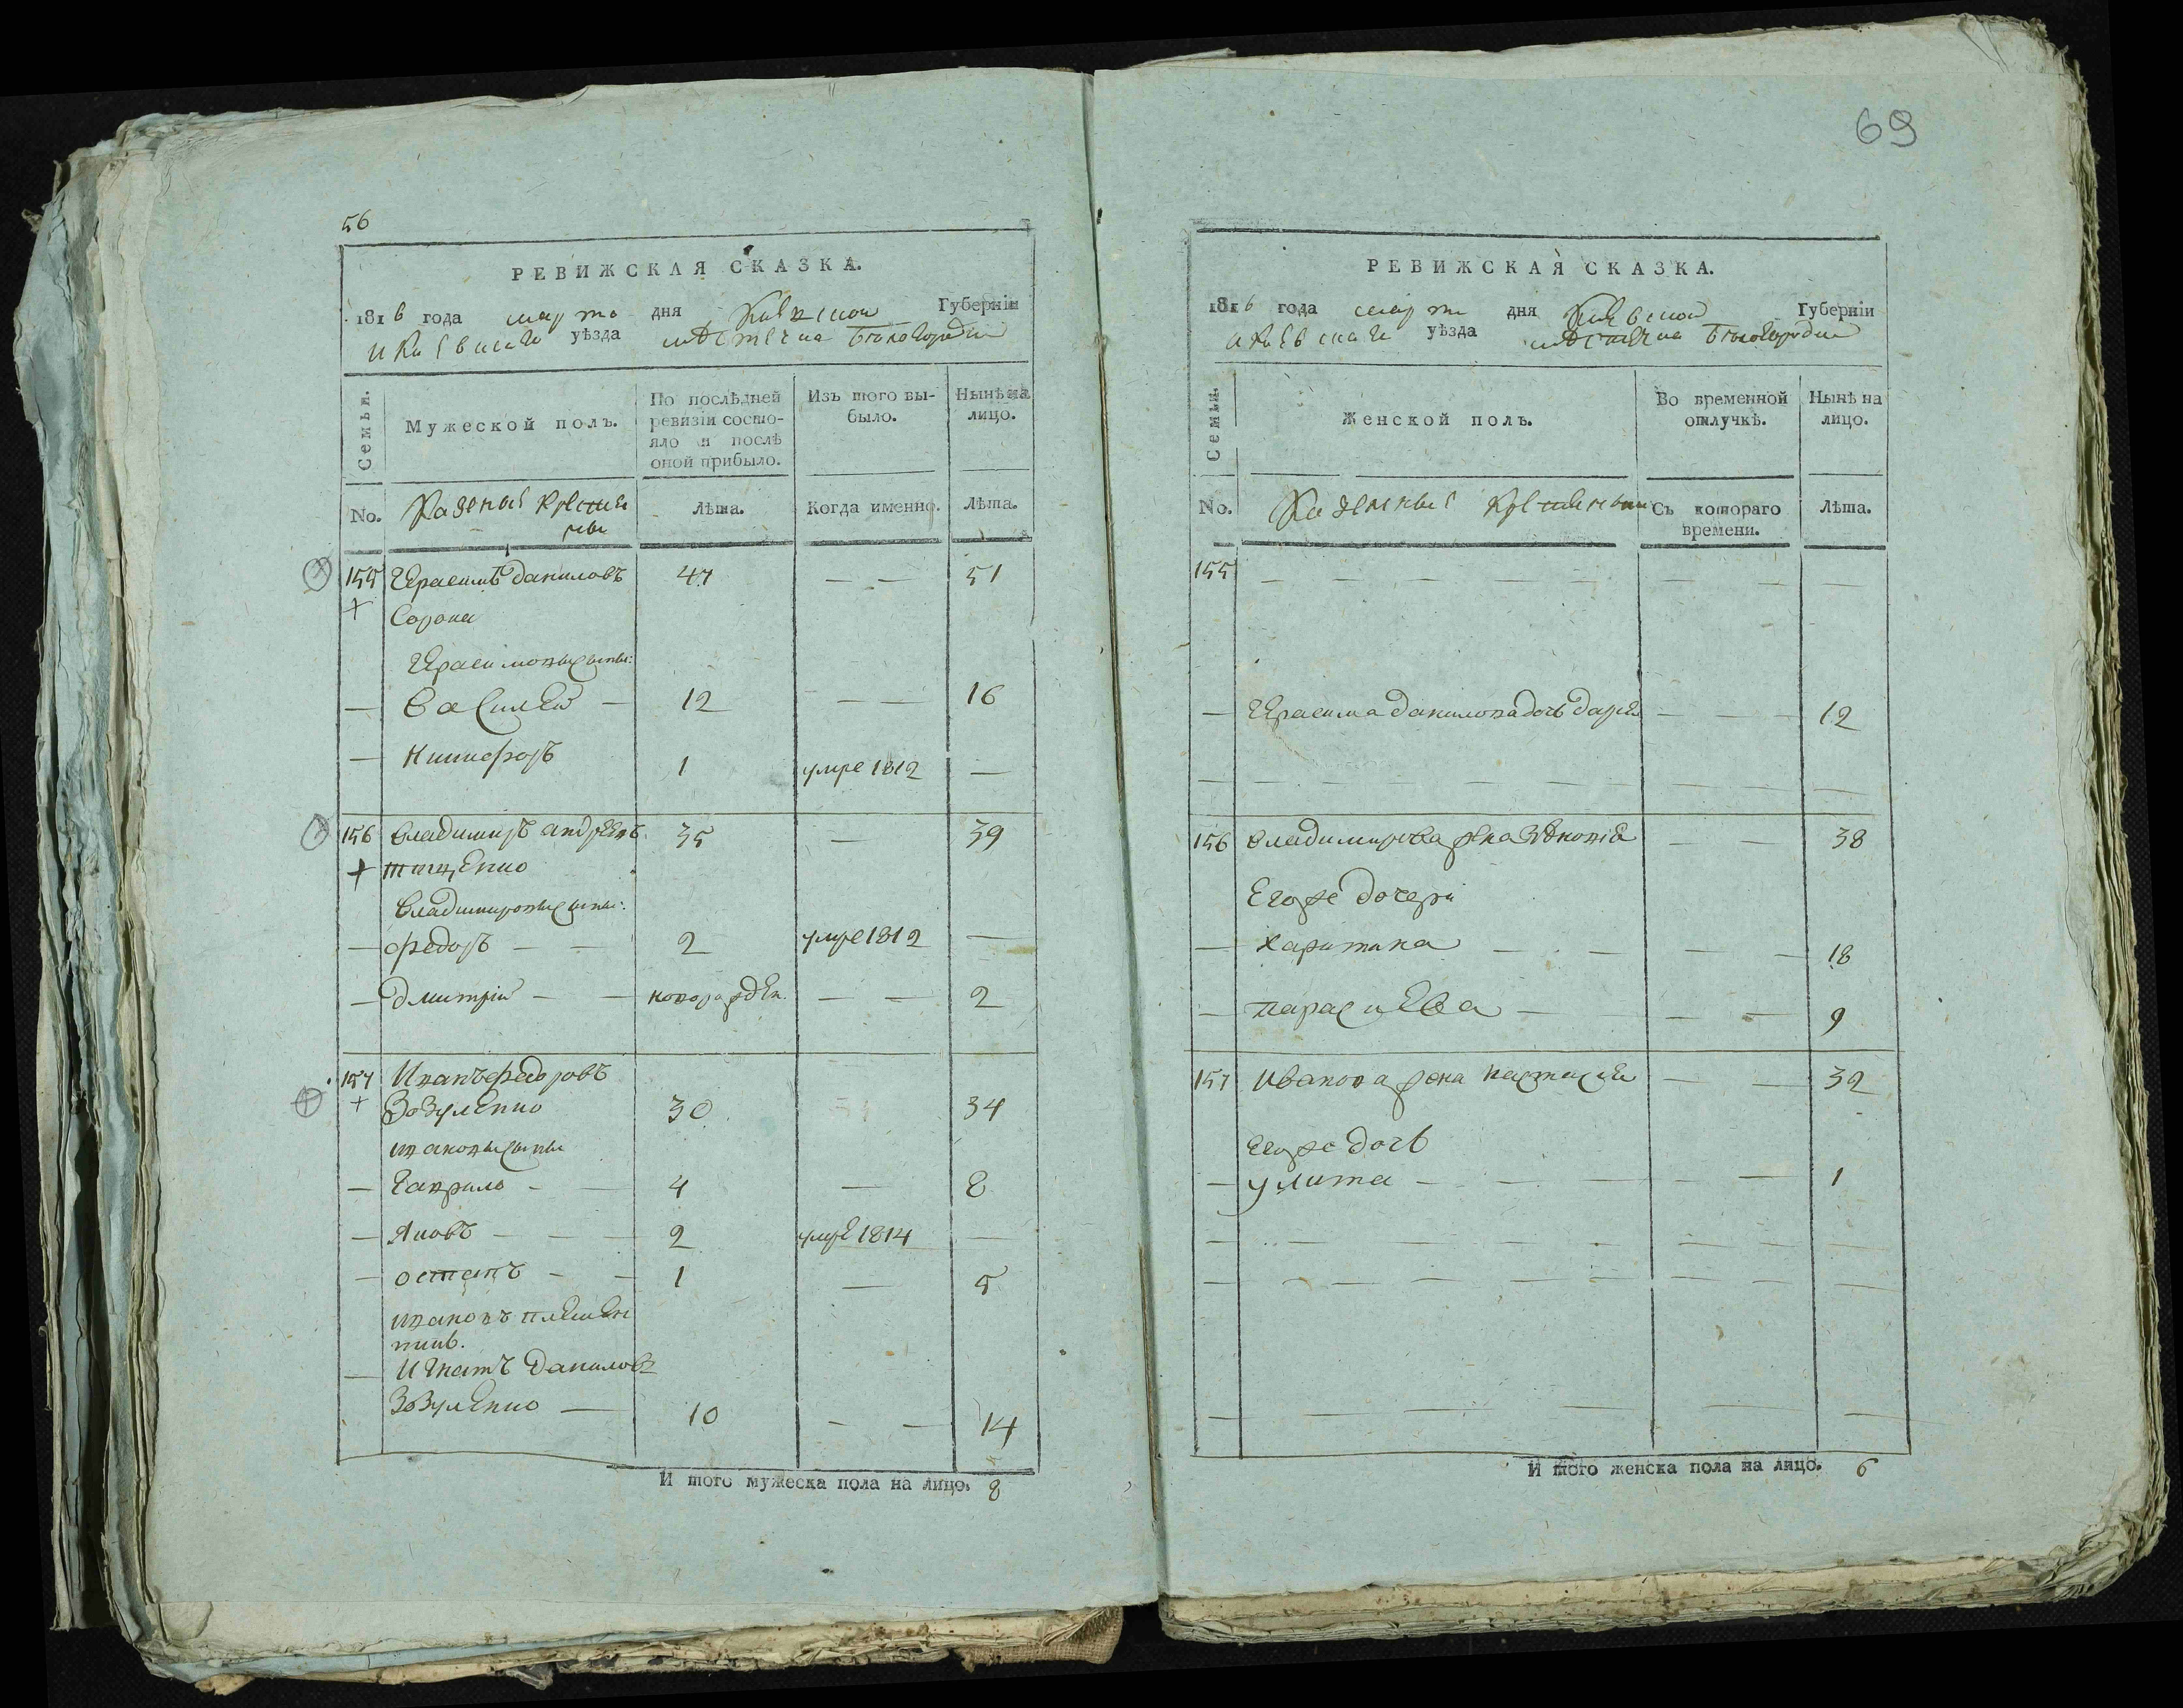 56
РЕВИЖСКАЯ СКАЗКА.
1816 года марта дня Киевской Губерніи
и Киевскаго уѣзда мѣстечка Белогородки
Семьи.
Мужеской полъ.
По послѣдней ревизіи состояло и послѣ оной прибыло.
Изъ того выбыло.
Нынѣ на лицо.
No. Казеные крестяны
Лѣта.
Когда именно.
Лѣта.
155 Герасимъ даниловъ 47 — — 51
Сорока
Герасимовы сыны:
— василей — 12 — — 16
— Никифоръ 1 умре 1812 —
156 владимиръ андреевъ 35 — 39
тищенко
владимировы сыны:
— федоръ — — 2 умре 1812 —
— дмитрій — — новорожден. — — 2
157 Иванъ федоровъ
Зозуленко 30 34
ивановы сыны
— Гаврило — — 4 — 8
— Яковъ — — — 2 умре 1814 —
— остапъ — — 1 — 5
ивановъ племен
никъ.
— Игнатъ Даниловъ
Зозуленко — 10 — — 14
И того мужеска пола на лицо. 8
69
РЕВИЖСКАЯ СКАЗКА.
1816 года марта дня Киевской Губерніи
и Киевскаго уѣзда мѣстечка Белогородки
Семьи.
Женской полъ.
Во временной отлучкѣ.
Нынѣ на лицо.
No. Казенные крестянки
Съ котораго времени.
Лѣта.
155 — — — — — — — — —
— Герасима данилова дочь дарея — — — 12
— — — — — — — — — —
156 владимирова жена — — 38
Его же дочери
— Харитина — — — — — 18
— парасцева — — — — 9
157 Иванова жена настасия — — 32
Его же дочь
— улита — — — — — — 1
— — — — — — — — — —
— — — — — — — — — —
— — — — — —
И того женска пола на лицо. 6